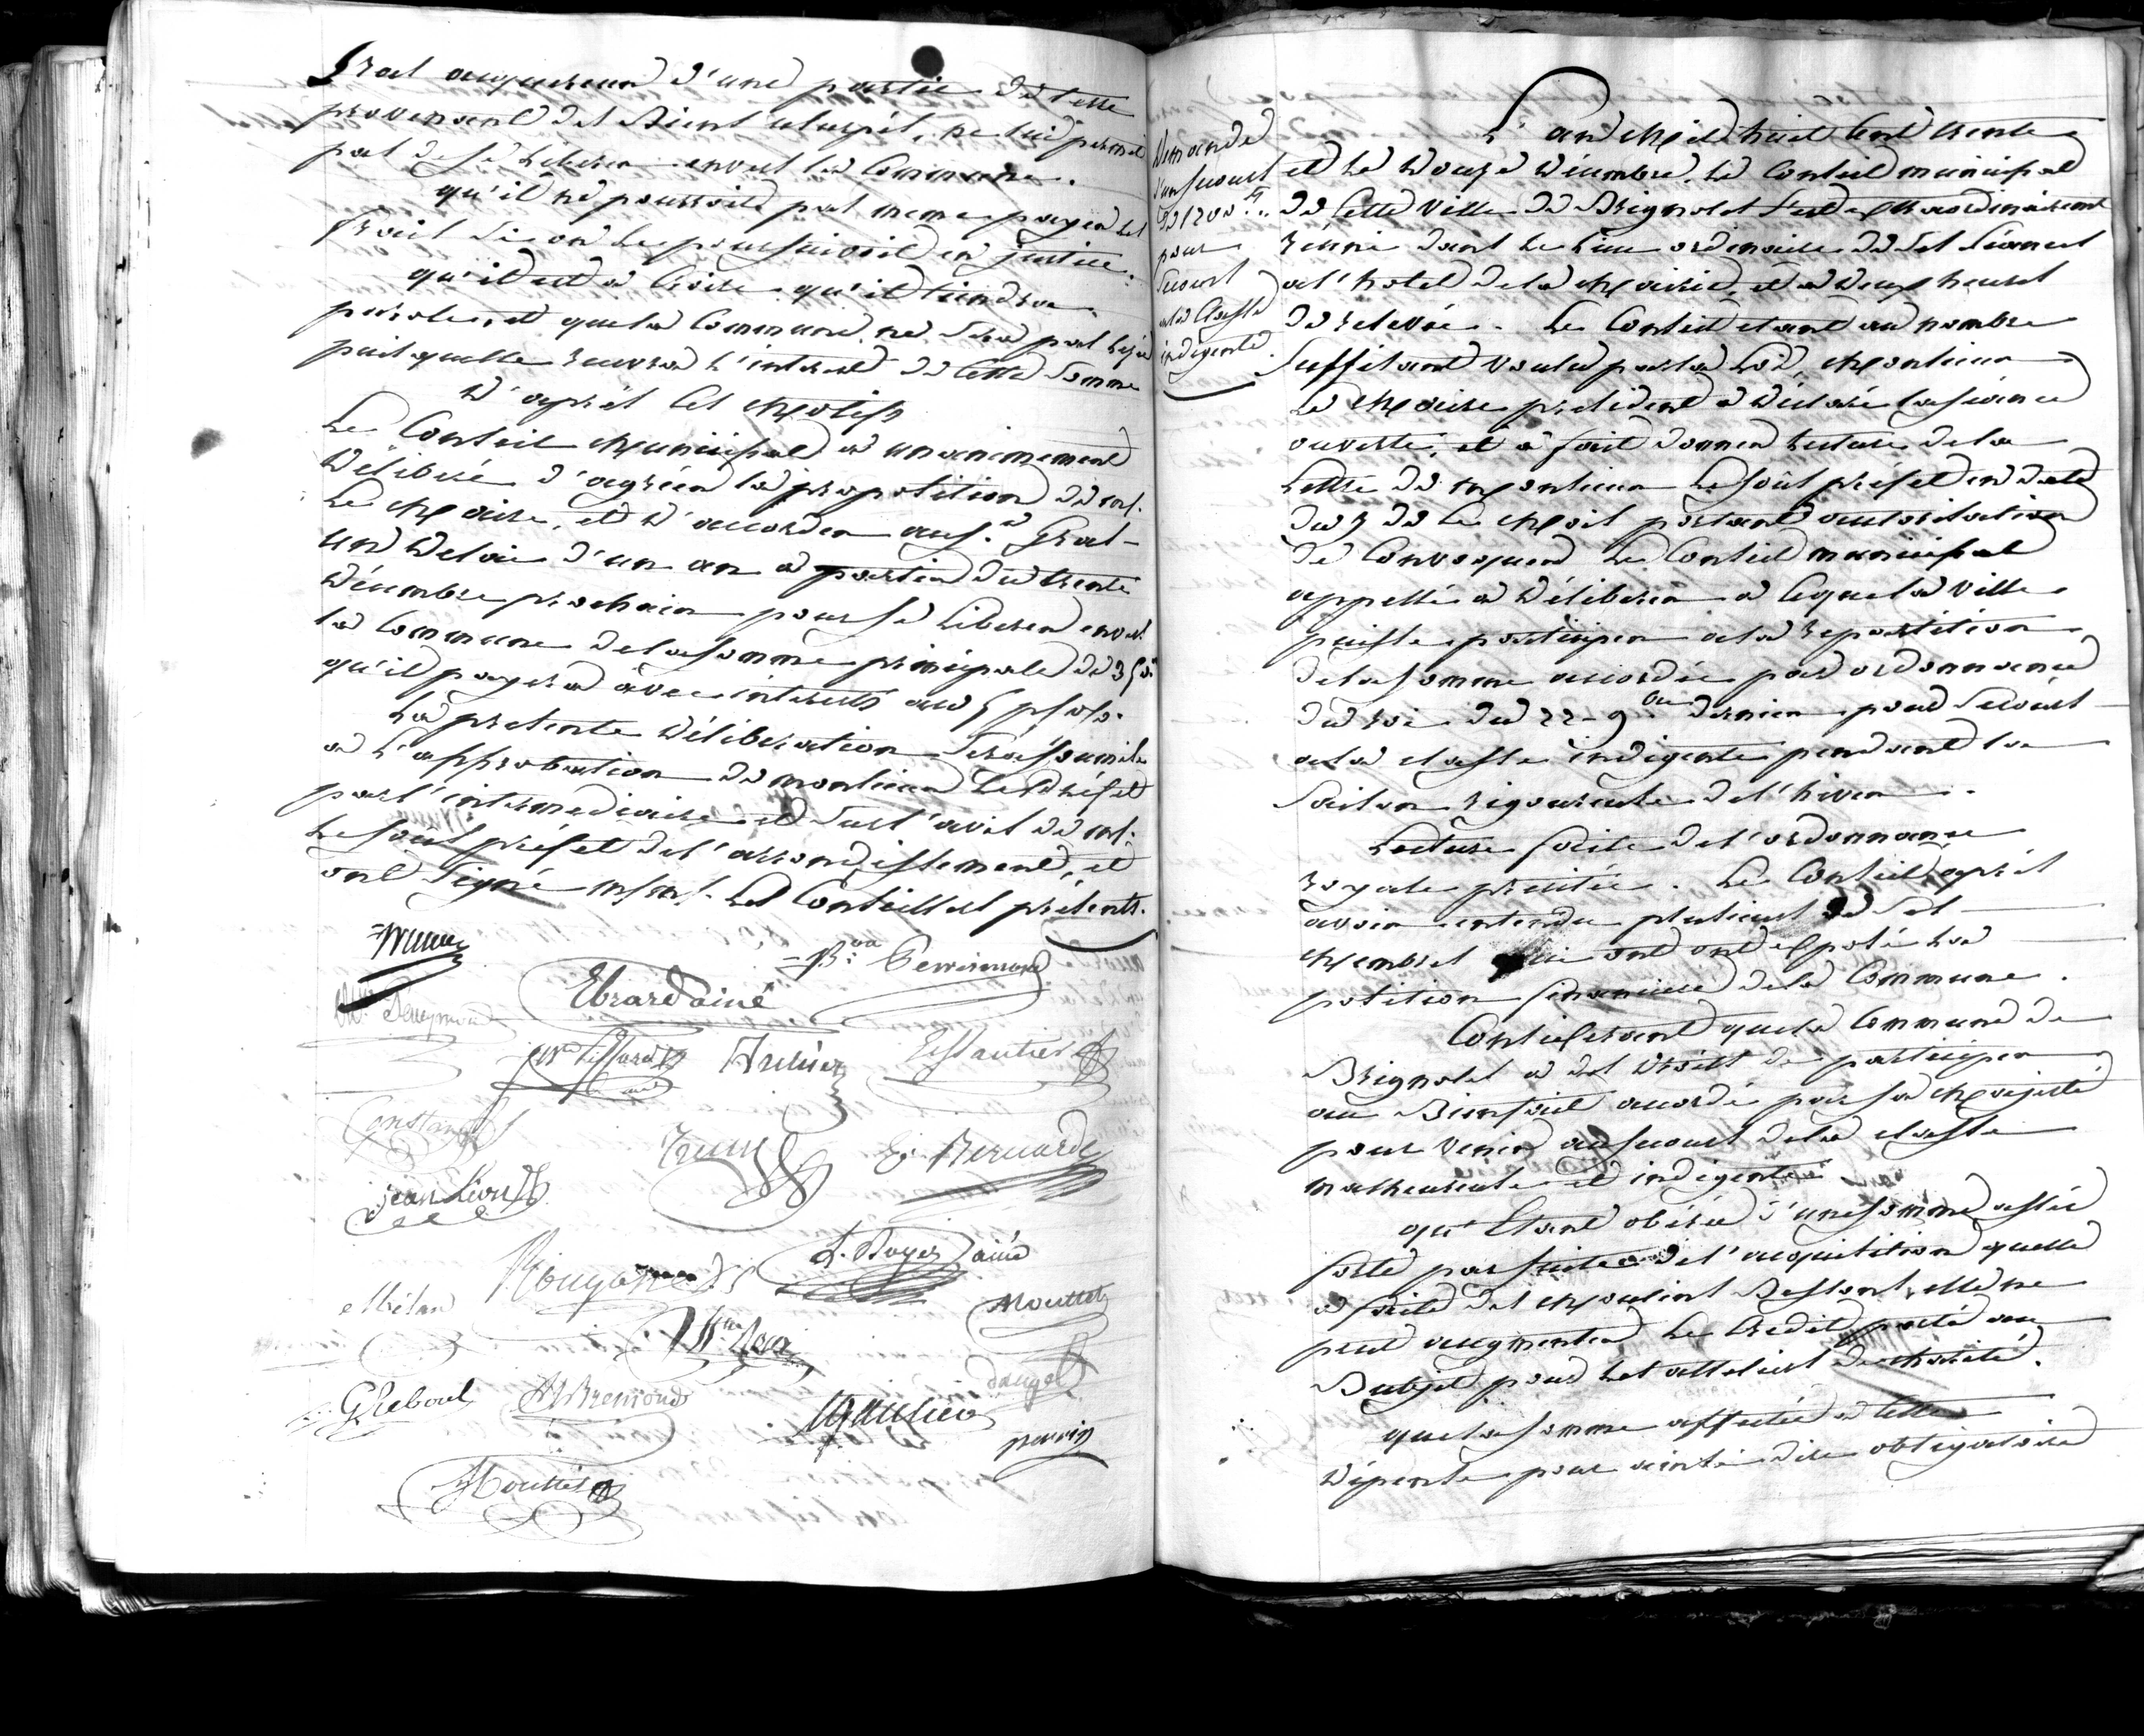 Grat acquereur d'une partie de cette
provenant des biens usurpés, ne lui permet
pas de se liberer envers la Commune.
qu'il ne pourroit pas meme payer les
frais si on le poursuivoit en justice.
qu'il est a croire qu'il tiendra
parole, et que la Commune ne sera pas lezée
puisquelle recevra l'interet de cette somme
D'après ces Motifs
Le Conseil Municipal a unanimement
Délibéré d'agréer la proposition de mr.
Le Maire, et d'accorder au sr. Grat
un Delai d'un an a partir du trente
Décembre prochain pour se liberer envers
la Commune de la somme principale de
qu'il payera avec interets au 5 p%.
La presente Délibération sera soumise
a l'approbation de monsieur Le Préfet
par l'intermediaire et sur l'avis de mr.
le sous préfet de l'arrondissement, et
ont signé MM. Les Conseillers présents.
Bon Perrimond
Ebrard ainé
Gautier
Constans
E. Bernard
jean Leon
Rougon
L. Boyer ainé
Mouttet
G Reboul
Bremond
perrin
Demande
d'un secours
de 1200 ff
pour
secours
a la Classe
indigente.
L'an Mil huit Cent trente
et le Douze Décembre, Le Conseil municipal
de Cette Ville de Brignoles s'est extraordinairement
réuni dans le lieu ordinaire de ses séances
a l'hotel de la Mairie, et a deux heures
de relevée. Le Conseil etant au nombre
suffisant voulu par la loi, Monsieur
Le Maire president a déclaré la séance
ouverte, et a fait donner lecture de la
Lettre de Monsieur Le sous préfet en date
du 7 de Ce Mois portant autorisation
de Convoquer Le Conseil municipal
appellé a Délibérer a Ceque la Ville
puisse participer a la repartition
de la somme accordée par ordonnance
du roi du 22 9bre dernier pour secours
a la classe indigente pendant la
saison rigoureuse de l'hiver.
Lecture faite de l'ordonnance
royale précitée. Le Conseil après
avoir entendu plusieurs de ses
Membres qui ont ont exposé la
position financiére de la Commune.
Considerant que la Commune de
Brignoles a des Droits de participer
au Bienfait accordé par sa Majesté
pour venir au secours de la classe
malheureuse et indigente
qu'Etant obérée d'une somme assés
forte par suite de l'acquisition quelle
a faite des Moulins Bessons, elle ne
peut augmenter Le Credit porté au
Budjet pour les atteliers de charité.
que la somme affectée a Cette
Dépense pour ainsi dire obligatoire